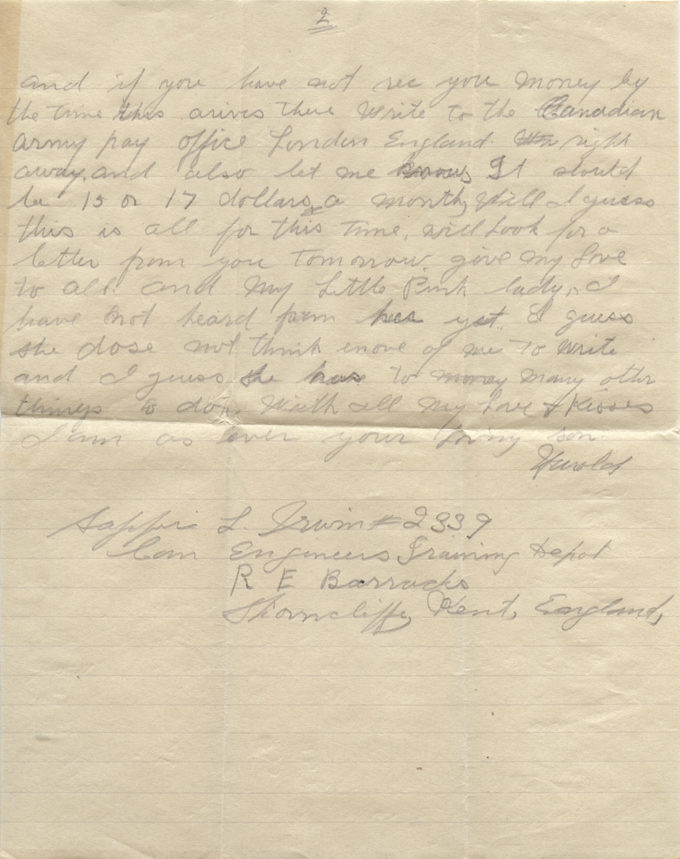 2
and if you have not rec you money by
the time this arives there write to the Canadian
army pay office London England. right
away, and also let me know, It should
be 15 or 17 dollars, a month, Well I guess
this is all for this time, will look for a
letter from you tomorrow, give my love
to all and my Little Pink lady, I
have not heard from her yet. I guess
she dose not think enove of me to write
and I guess she has to many other
things to do. With all my love & Kisses
I am as ever your loving son.
Harold
Sapper L. Irwin # 2339
Can Engineers Training Depot
R E Barracks
Shorncliffe, Kent, England,